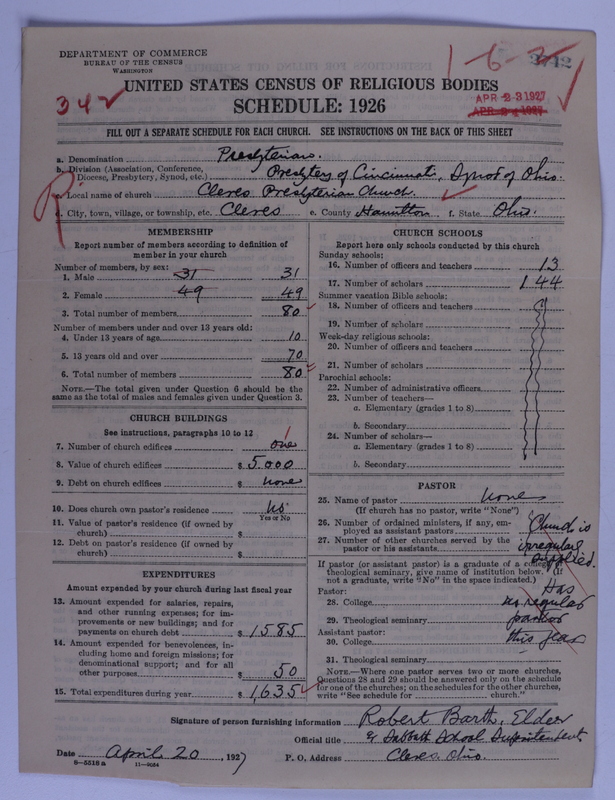 DEPARTMENT OF COMMERCE
BUREAU OF THE CENSUS
WASHINGTON
1-6-
342
UNITED STATES CENSUS OF RELIGIOUS BODIES
APR 23 1927
SCHEDULE: 1926
FILL OUT A SEPARATE SCHEDULE FOR EACH CHURCH. SEE INSTRUCTIONS ON THE BACK OF THIS SHEET
a. Denomination Presbyterian.
b. Division (Association, Conference, Diocese, Presbytery, Synod, etc.) Presbytery of Cincinnati, Synod of Ohio.
c. Local name of church Cleves Presbyterian Church.
d. City, town, village, or township, etc. Cleves e. County Hamilton f. State Ohio.
MEMBERSHIP
Report number of members according to definition of
member in your church
Number of members, by sex:
1. Male 31 31
2. Female 49 49
3. Total number of members 80
Number of members under and over 13 years old:
4. Under 13 years of age 10
5. 13 years old and over 70
6. Total number of members 80
NOTE.—The total given under Question 6 should be
same as the total of males and females given under Question 3.
CHURCH BUILDINGS
See instructions, paragraphs 10 to 12
7. Number of church edifices one
8. Value of church edifices $ 5.000
9. Debt on church edifices $ none
10. Does church own pastor's residence no
Yes or No
11. Value of pastor's residence (if owned by
church) $
12. Debt on pastor's residence (if owned by
church) $
EXPENDITURES
Amount expended by your church during last fiscal year
13. Amount expended for salaries, repairs,
and other running expenses; for im-
provements or new buildings; and for
payments on church debt $ 1585
14. Amount expended for benevolences, in-
cluding home and foreign missions; for
denominational support; and for all
other purposes $ 50
15. Total expenditures during year $ 1,635
CHURCH SCHOOLS
Report here only schools conducted by this church
Sunday schools:
16. Number of officers and teachers 13
17. Number of scholars 144
Summer vacation Bible schools:
18. Number of officers and teachers
19. Number of scholars
Week-day religious schools:
20. Number of officers and teachers
21. Number of scholars
Parochial schools:
22. Number of administrative officers
23. Number of teachers—
a. Elementary (grades 1 to 8)
b. Secondary
24. Number of scholars—
a. Elementary (grades 1 to 8)
b. Secondary
PASTOR
25. Name of pastor none
(If church has no pastor, write "None")
26. Number of ordained ministers, if any, em-
ployed as assistant pastors Church is
27. Number of other churches served by the
pastor or his assistants irregularly
supplied.
If pastor (or assistant pastor) is a graduate of a college or
theological seminary, give name of institution below. (If
not a graduate, write "No" in the space indicated.)
Pastor: Has
28. College no regular
29. Theological seminary pastor
Assistant pastor: this year
30. College
31. Theological seminary
NOTE.—Where one pastor serves two or more churches,
Questions 28 and 29 should be answered only on the schedule
for one of the churches; on the schedules for the other churches,
write "See schedule for church."
Signature of person furnishing information Robert Barth, Elder
Official title & Sabbath School Superintendent
Date April 20, 1927 P. O. Address Cleves, Ohio.
8—5518 a 11—9034